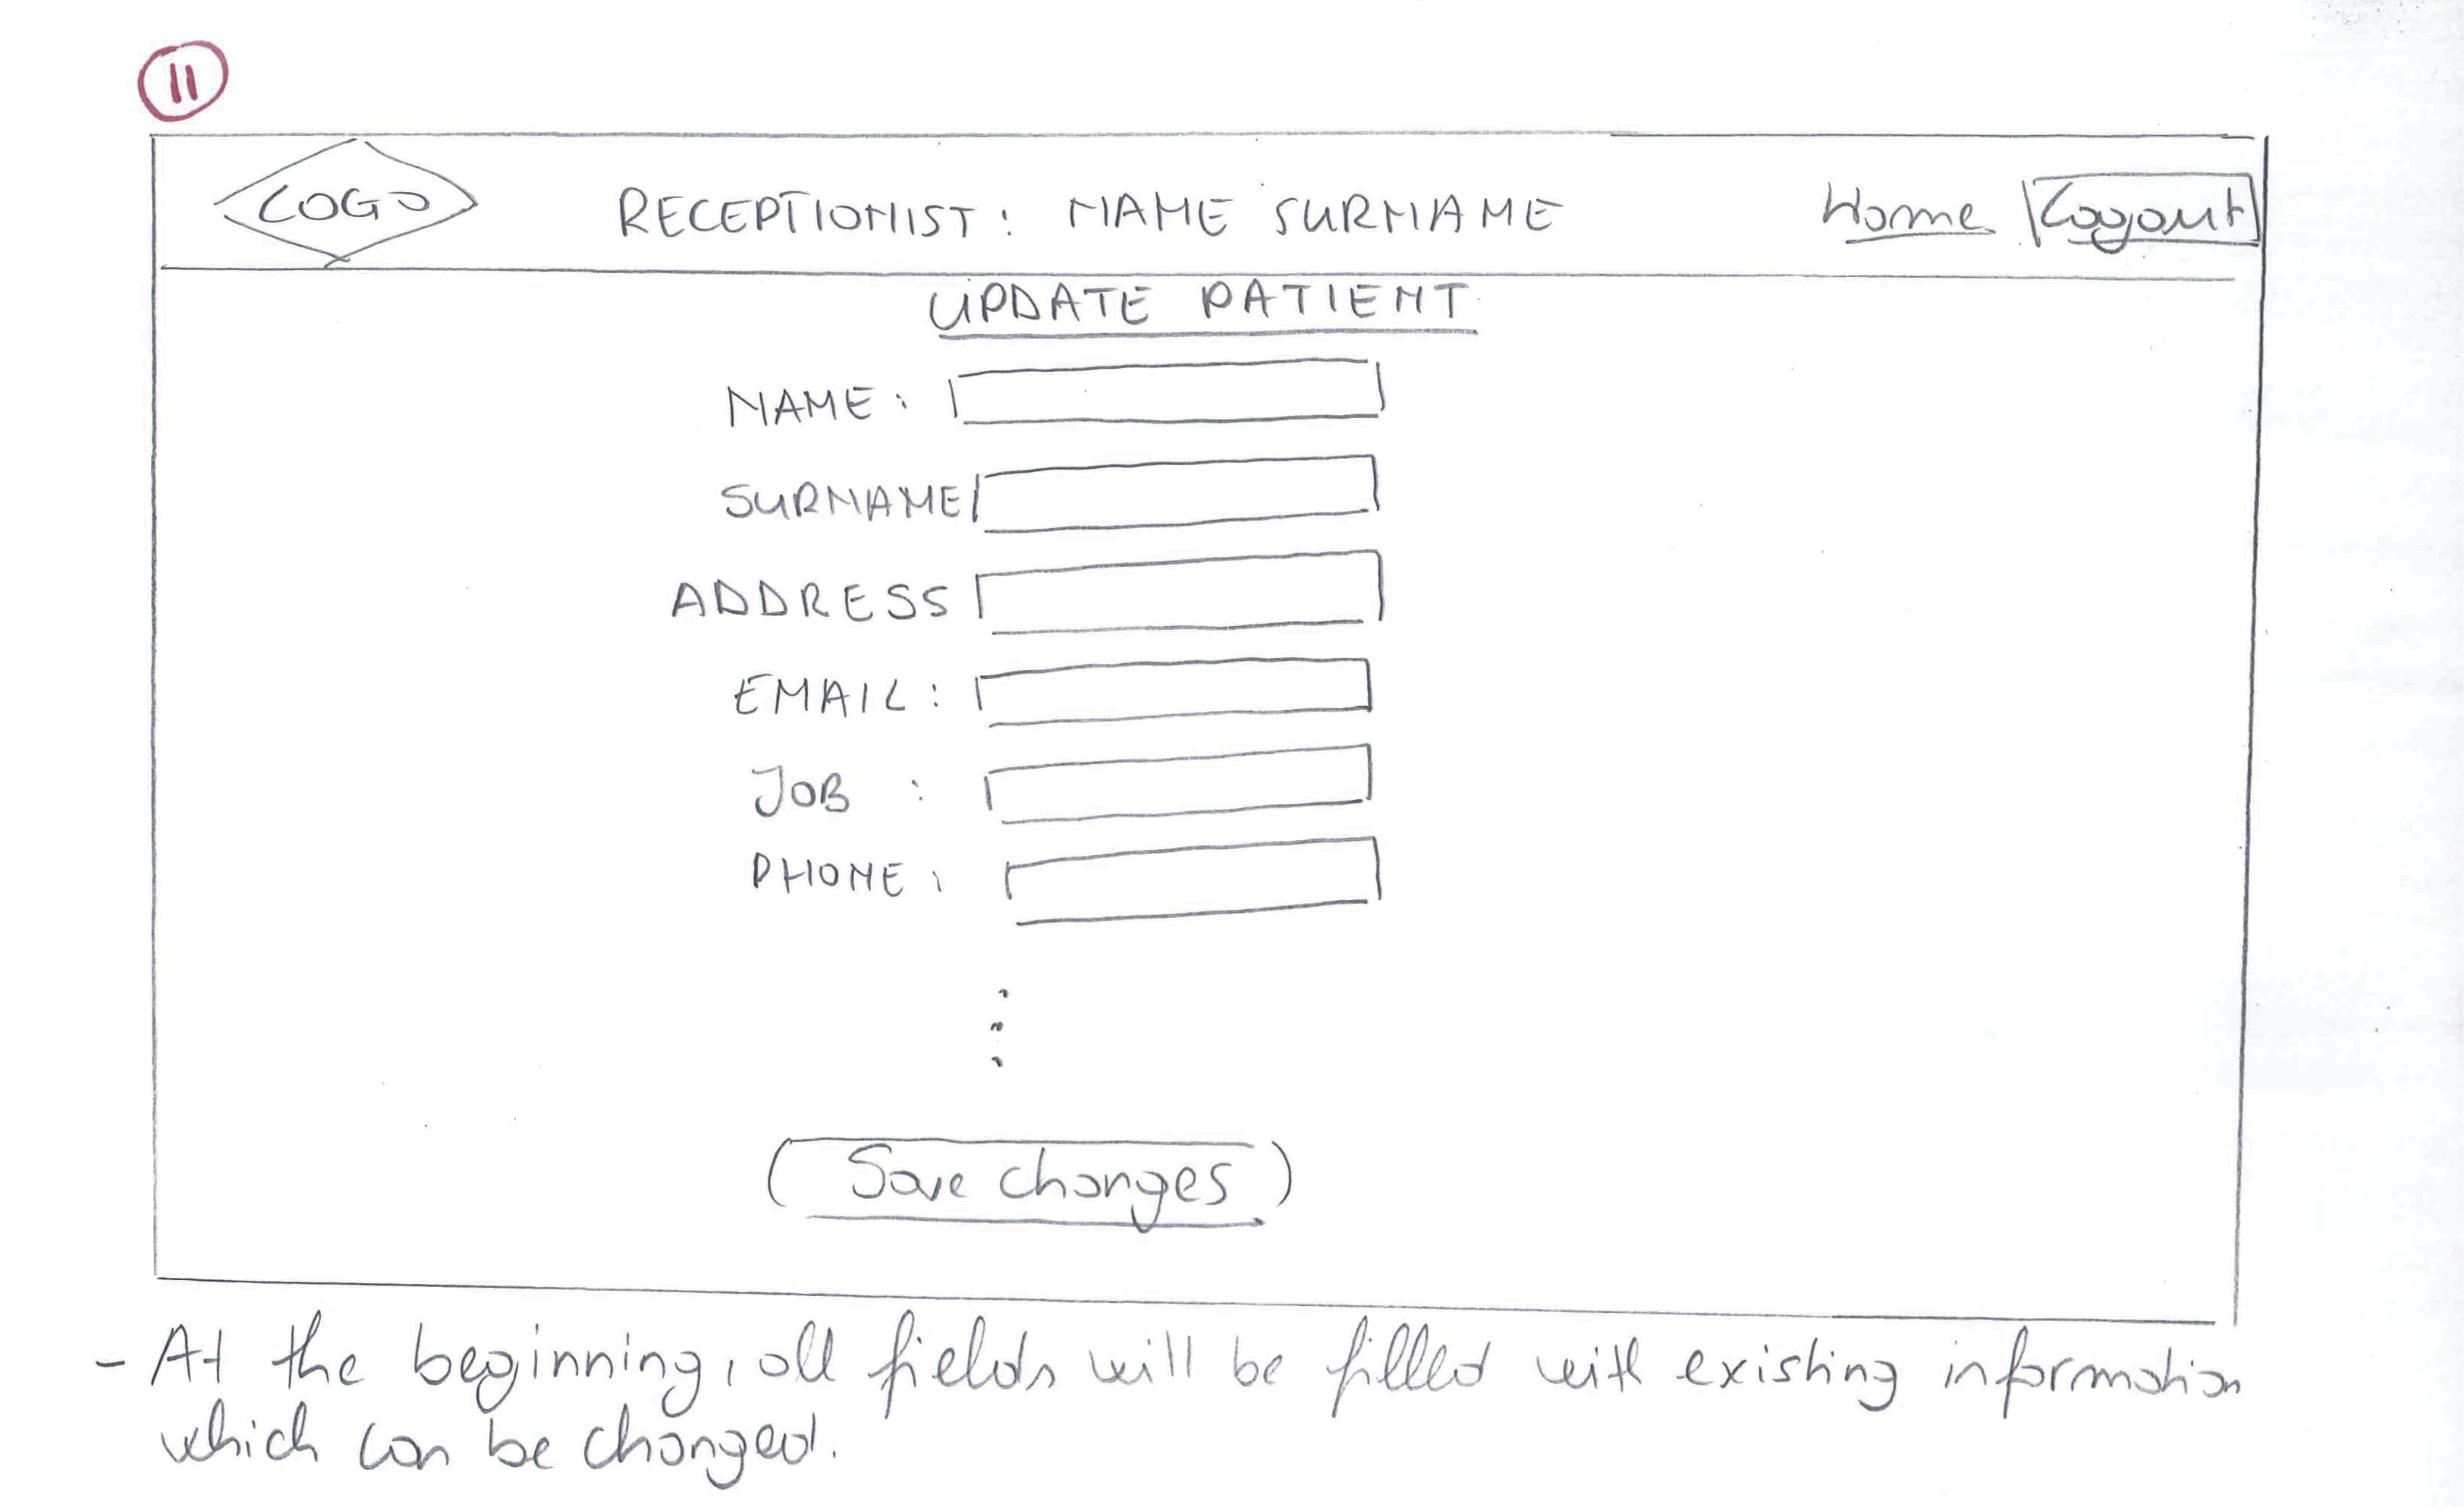 11
LOGO RECEPTIONIST: NAME SURNAME Home Logout
UPDATE PATIENT
NAME:
SURNAME
ADDRESS
EMAIL:
JOB :
PHONE:
Save changes
- At the beginning, all fields will be filled with existing information
which can be changed.